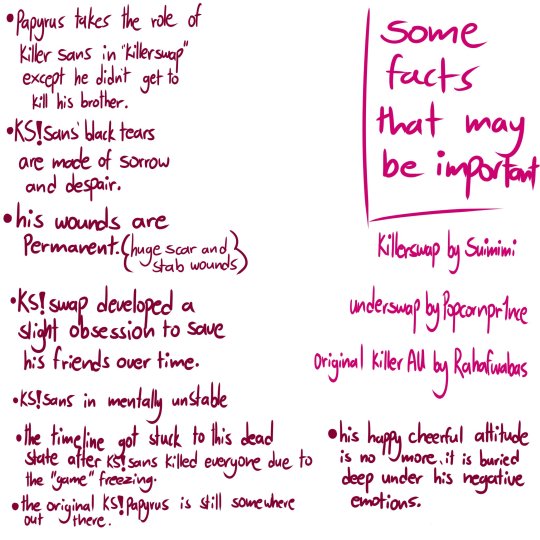 •Papyrus takes the role of
killer sans in "killerswap"
except he didn't get to
kill his brother.
•KS!sans' black tears
are made of sorrow
and despair.
•his wounds are
Permanent.(huge scar and
stab wounds)
•KS!swap developed a
slight obsession to save
his friends over time.
•KS!sans in mentally unstable
•the timeline got stuck to this dead
state after KS!sans killed everyone due to
the "game" freezing.
•the original KS!Papyrus is still somewhere
out there.
some
facts
that may
be important
Killerswap by Suimimi
underswap by Popcornpr1nce
Original Killer AU by Rahafwabas
•his happy cheerful attitude
is no more. it is buried
deep under his negative
emotions.